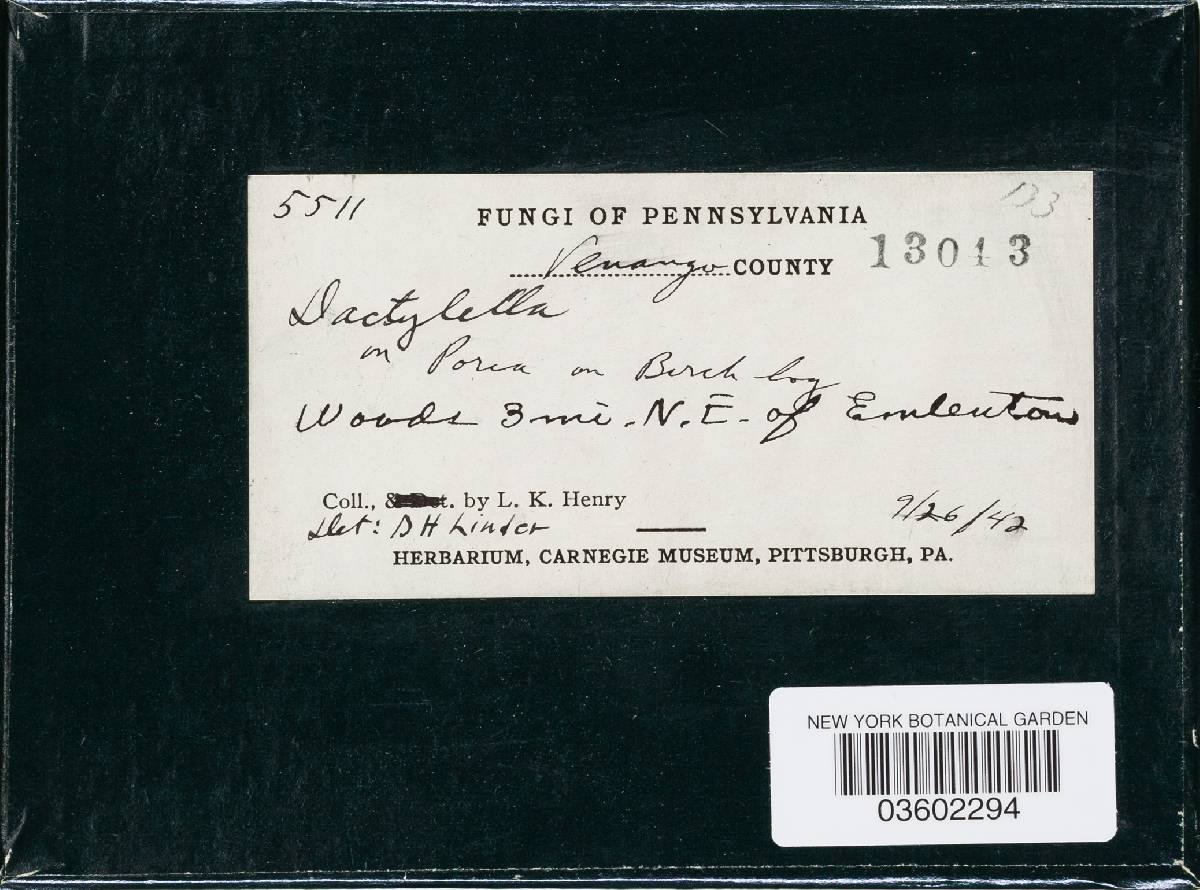 5511
FUNGI OF PENNSYLVANIA
Venango COUNTY 13013
Dactylella
on Poria on Birch log
Woods 3 mi. N.E. of Emlenton
Coll., & Det. by L. K. Henry
Det: D H Linder
9/26/42
HERBARIUM, CARNEGIE MUSEUM, PITTSBURGH, PA.
NEW YORK BOTANICAL GARDEN
03602294